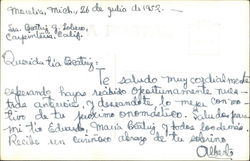 Morelia, Mich., 26 de julio de 1952.
Sra. Beatriz G. Lobero,
Carpinteria, Calif.
Querida tía Beatriz:
Te saludo muy cordialmente
esperando hayas recibido oportunamente nues-
tras anteriores, y deseándote lo mejor con mo-
tivo de tu próximo onomástico. Saludos para
mi tío Eduardo, María Beatriz, y todos los demás.
Recibe un cariñoso abrazo de tu sobrino
Alberto